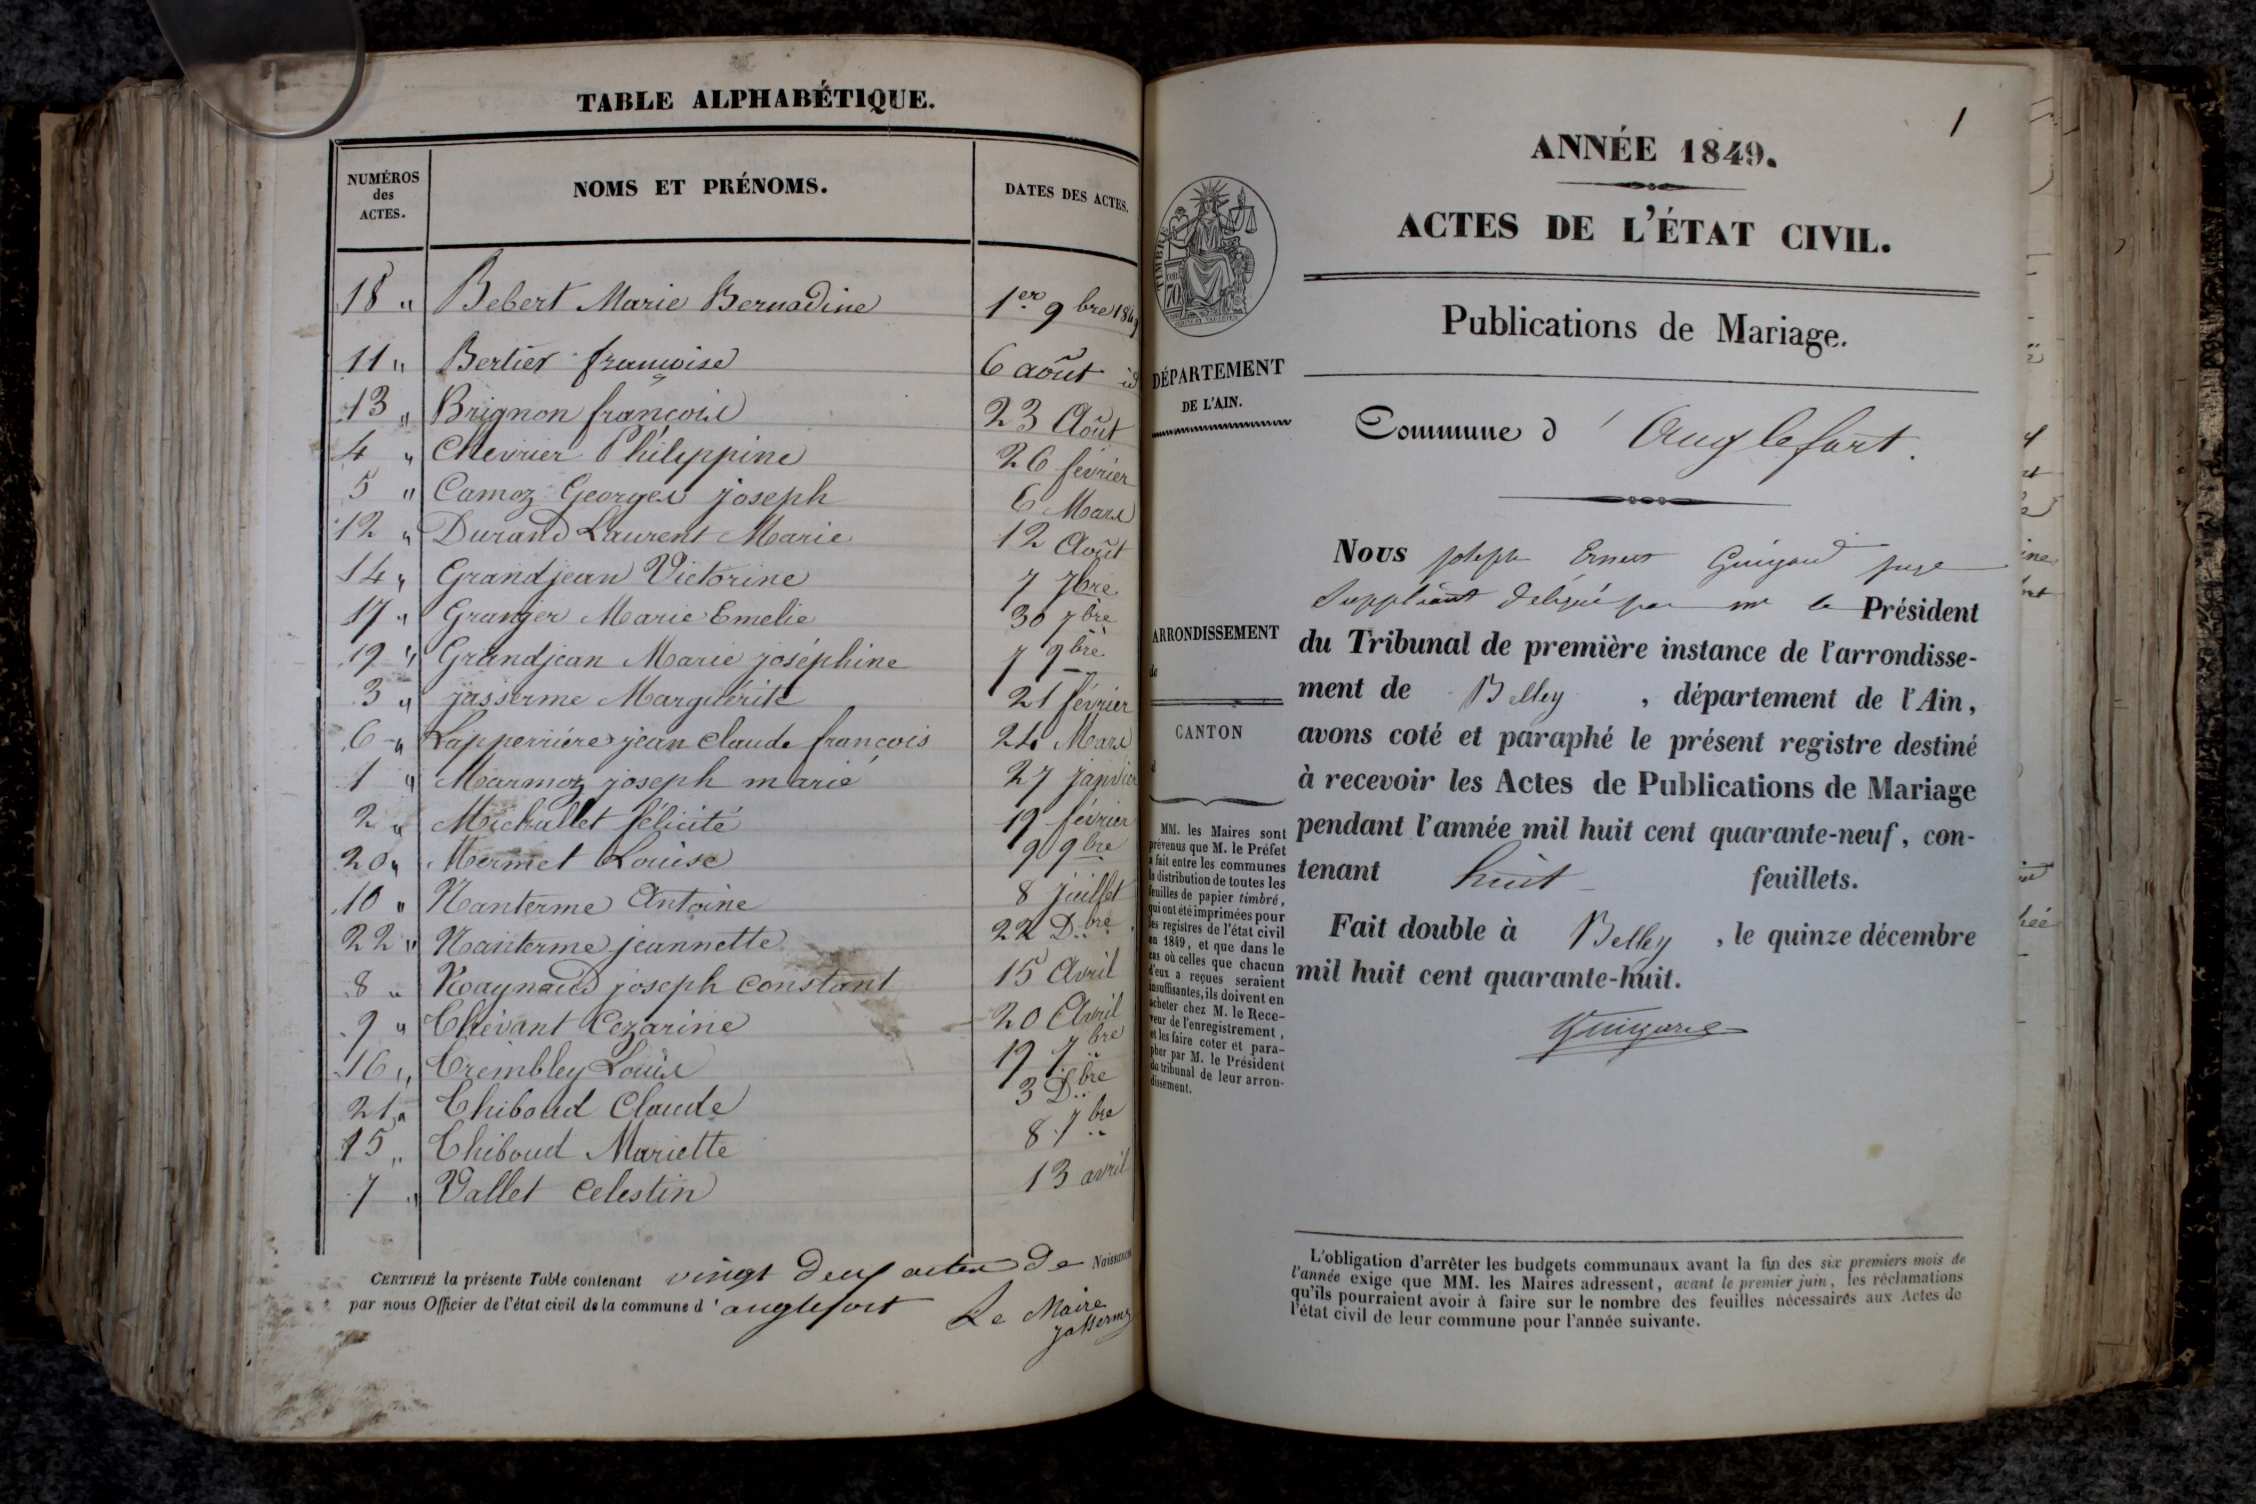 TABLE ALPHABÉTIQUE.
NUMÉROS des ACTES. NOMS ET PRÉNOMS. DATES DES ACTES.
18 " Bebert Marie Bernadine 1er 9bre 1849
11 " Bertier françoise 6 août id
13 " Brignon françois 23 Août
4 " Chevrier Philippine 26 février
5 " Camoz Georges joseph 6 Mars
12 " Durand Laurent Marie 12 Août
14 " Grandjean Victorine 7 7bre
17 " Granger Marie Emelie 30 7bre
19 " Grandjean Marie joséphine 7 9bre
3 " jasserme Marguérite 21 février
6 " Lapperrière jean claude francois 24 Mars
1 " Marmoz joseph marie 27 janvier
2 " Michallet félicité 19 février
20 " Mermet Louise 9 9bre
10 " Nanterme Antoine 8 juillet
22 " Nanterme jeannette 22 Dbre
8 " Raynaud joseph constant 15 Avril
9 " Thévant Cezarine 20 Avril
16 " Trembley Louis 19 7bre
21 " Thiboud Claude 3 Dbre
15 " Thiboud Mariette 8 7bre
7 " Vallet Celestin 13 avril
CERTIFIÉ la présente Table contenant vingt deux actes de Naissance
par nous Officier de l'état civil de la commune d'anglefort Le Maire
Jasserme
1
ANNÉE 1849.
ACTES DE L'ÉTAT CIVIL.
TIMBRE
70
Publications de Mariage.
DÉPARTEMENT
DE L'AIN.
Commune d'Anglefort.
Nous joseph Ernest Guigard juge
Suppléant délégué par mr le Président
ARRONDISSEMENT
de
du Tribunal de première instance de l'arrondisse-
ment de Belley, département de l'Ain,
CANTON
d
avons coté et paraphé le présent registre destiné
à recevoir les Actes de Publications de Mariage
pendant l'année mil huit cent quarante-neuf, con-
tenant huit feuillets.
Fait double à Belley, le quinze décembre
mil huit cent quarante-huit.
Guigard
MM. les Maires sont
prévenus que M. le Préfet
a fait entre les communes
la distribution de toutes les
feuilles de papier timbré,
qui ont été imprimées pour
les registres de l'état civil
en 1849, et que dans le
cas où celles que chacun
d'eux a reçues seraient
insuffisantes, ils doivent en
acheter chez M. le Rece-
veur de l'enregistrement,
et les faire coter et para-
pher par M. le Président
du tribunal de leur arron-
dissement.
L'obligation d'arrêter les budgets communaux avant la fin des six premiers mois de
l'année exige que MM. les Maires adressent, avant le premier juin, les réclamations
qu'ils pourraient avoir à faire sur le nombre des feuilles nécessaires aux Actes de
l'état civil de leur commune pour l'année suivante.